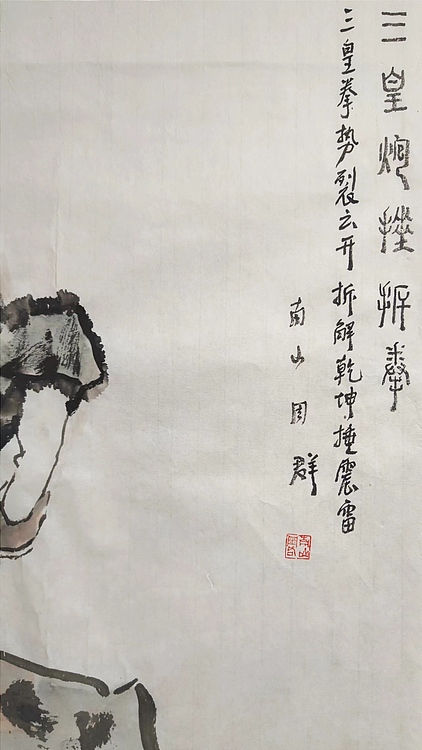 三皇炮捶拆拳
三皇拳势裂云开 拆解乾坤捶震雷
南山周群